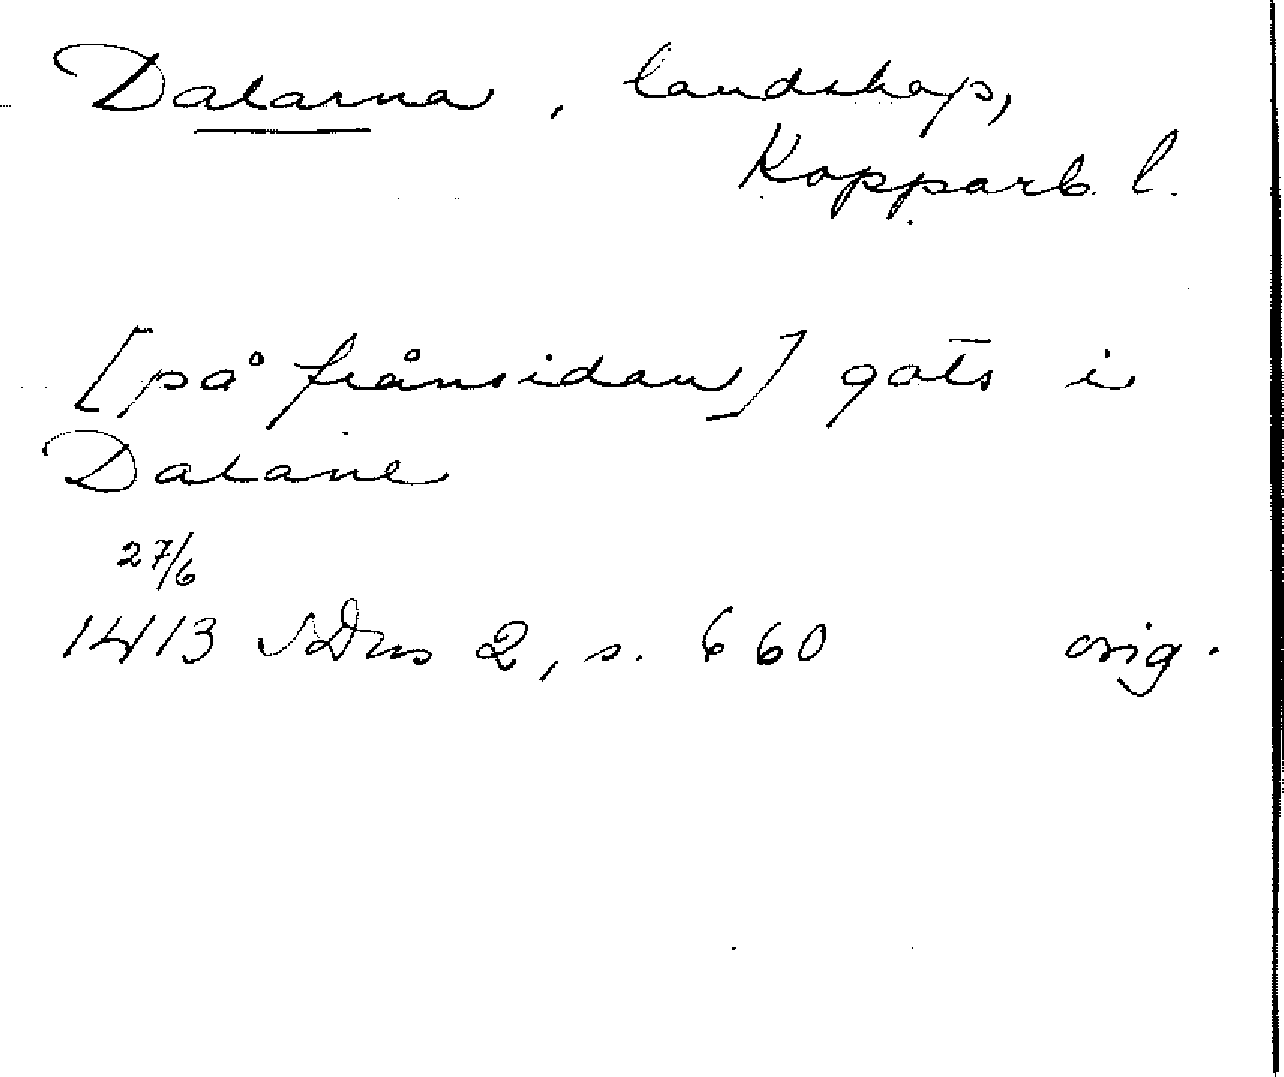 Dalarna, landskap,
Kopparb. l.
[på frånsidan] gots i
Dalane
27/6
1413 SDns 2, s. 660 orig.